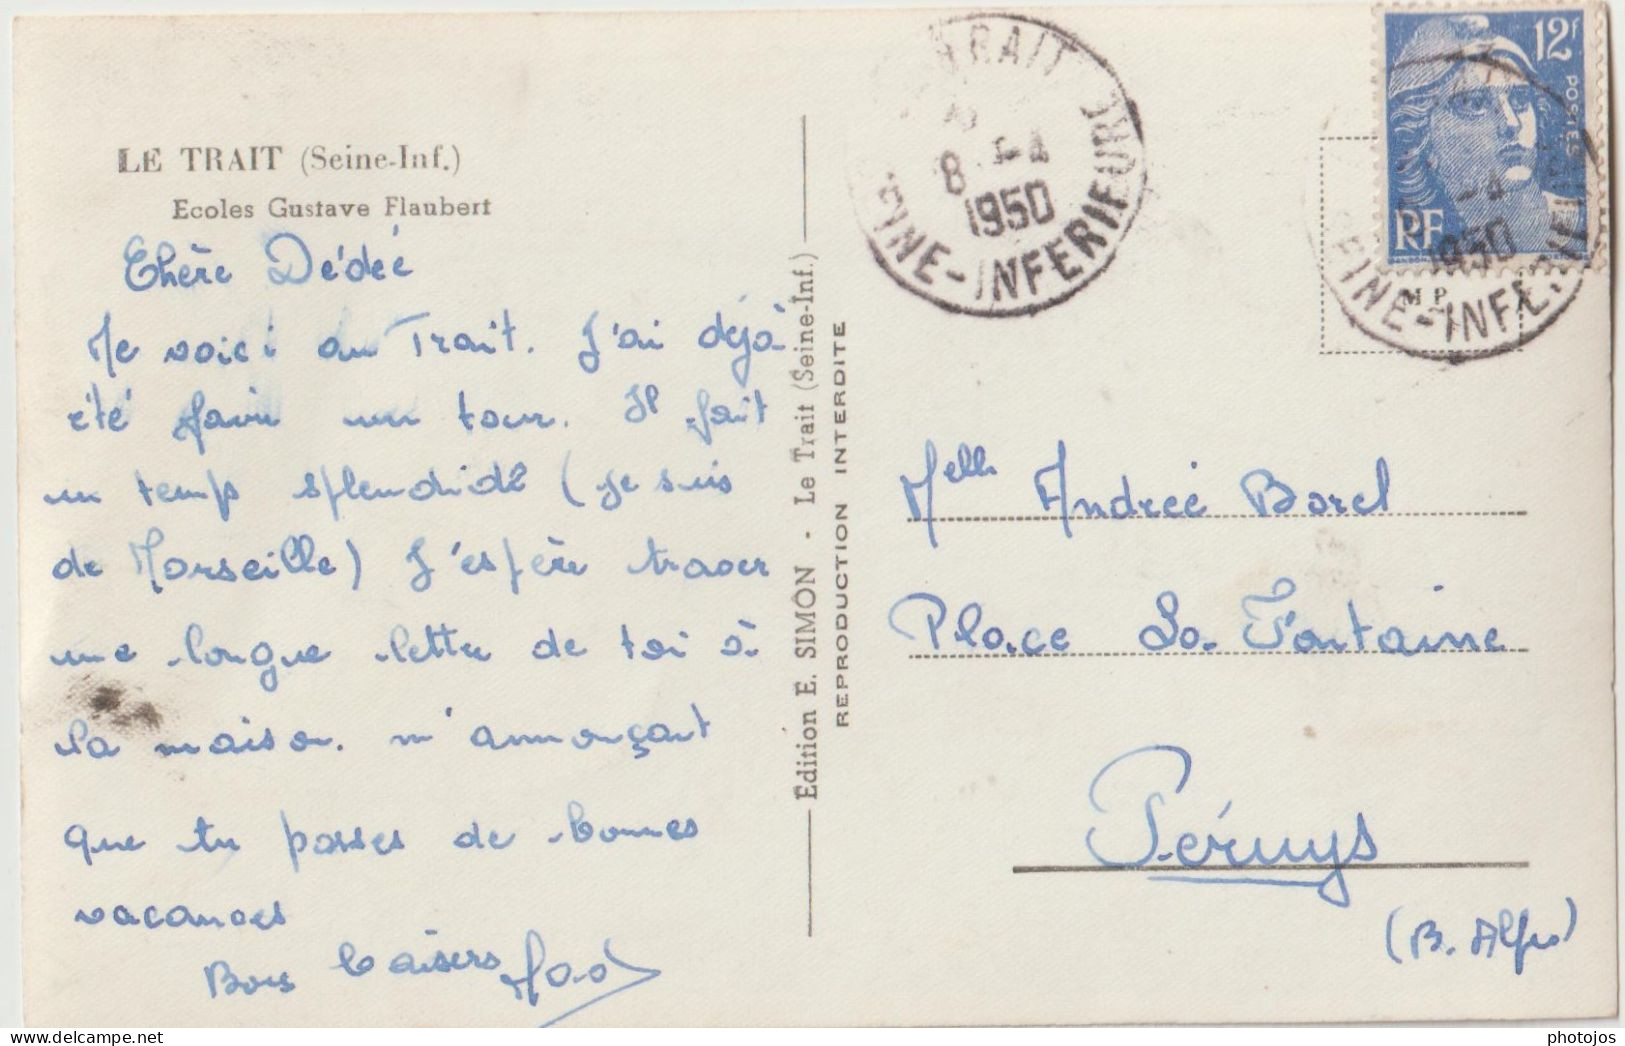 LE TRAIT (Seine-Inf.)
Ecoles Gustave Flaubert
Chère Dédée
Me voici au Trait. J'ai déjà
été faire un tour. Il fait
un temps splendide (je suis
de Marseille) J'espère trouver
une longue lettre de toi à
la maison. m'annonçant
que tu passes de bonnes
vacances
Bons baisers
Edition E. SIMON - Le Trait (Seine-Inf.)
REPRODUCTION INTERDITE
TRAIT
8 -4
1950
SEINE-INFERIEURE
12F
POSTES
RF
-4
1950
SEINE-INFERIEURE
Melle Andrée Borel
Place La Fontaine
Péruys
(B. Alpes)
photojos